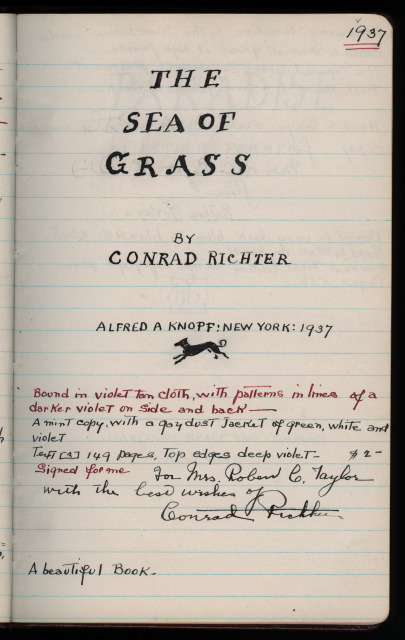 1937
THE
SEA OF
GRASS
BY
CONRAD RICHTER
ALFRED A KNOPF: NEW YORK: 1937
Bound in violet tan cloth, with patterns in lines of a
darker violet on side and back—
A mint copy, with a gay dust Jacket of green, white and
violet
Text [3] 149 pages, Top edges deep violet— $2-
Signed for me For Mrs. Robert C. Taylor
with the best wishes of
Conrad Richter
A beautiful Book.